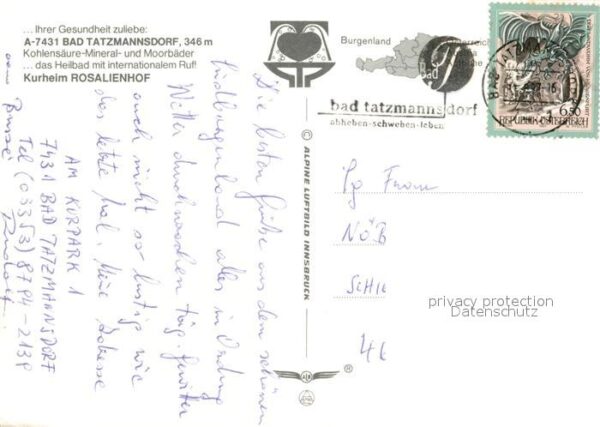 ...Ihrer Gesundheit zuliebe:
A-7431 BAD TATZMANNSDORF, 346 m
Kohlensäure-Mineral- und Moorbäder
...das Heilbad mit internationalem Ruf!
Kurheim ROSALIENHOF
Burgenland
bad tatzmannsdorf
abheben-schweben-leben
6.50
REPUBLIK ÖSTERREICH
© ALPINE LUFTBILD INNSBRUCK
Die besten Grüße aus dem schönen
Südburgenland alles in Ordnung
Wetter durchwachsen tägl. Gewitter
auch nicht so lustig wie
das letzte Mal. Meine Adresse
AM KURPARK 1
7431 BAD TATZMANNSDORF
Tel (03353) 8794-2138
Rudolf
Fg From
NÖB
SCHU
46
privacy protection
Datenschutz